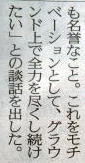 も名誉なこと。これをモチ
ベーションとして、グラウ
ンド上で全力を尽くし続け
たい」との談話を出した。